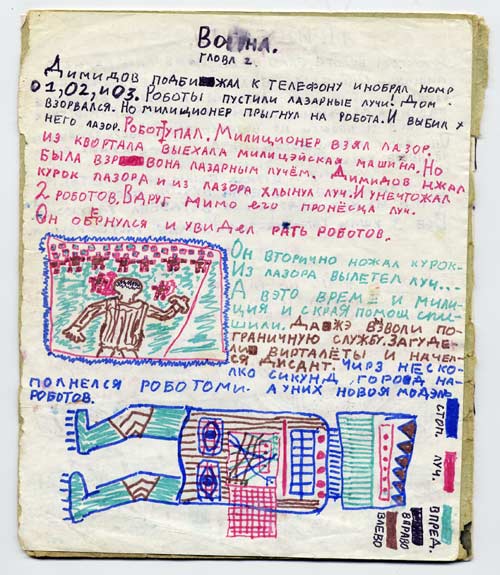 Война.
Глова 2.
Димидов подбижал к телефону инобрал номр
01,02, и 03. Роботы пустили лазарные лучи! Дом
взорвался. Но милиционер прыгнул на робота. И выбил у
него лазор. Робот упал. Милиционер взял лазор.
Из квортала выехала милицэйская машина. Но
была взр вона лазарным лучём. Димидов нжал
курок лазора и из лазора хлынул луч. И унечтожал
2 роботов. Вдруг мимо его пронёсца луч.
Он обернулся и увидел рать роботов.
Он вторично ножал курок-
Из лазора вылетел луч...
А вэто время и мили-
ция и скрая помощ спи-
шили. Давжэ взволи по-
граничную службу. Загуде-
ли вирталёты и начел-
ся дисант. Чирз неско-
лко сикунд, город на-
полнелся роботоми. А уних новоя модэль
роботов.
стоп.
луч.
впред.
вправо
влево